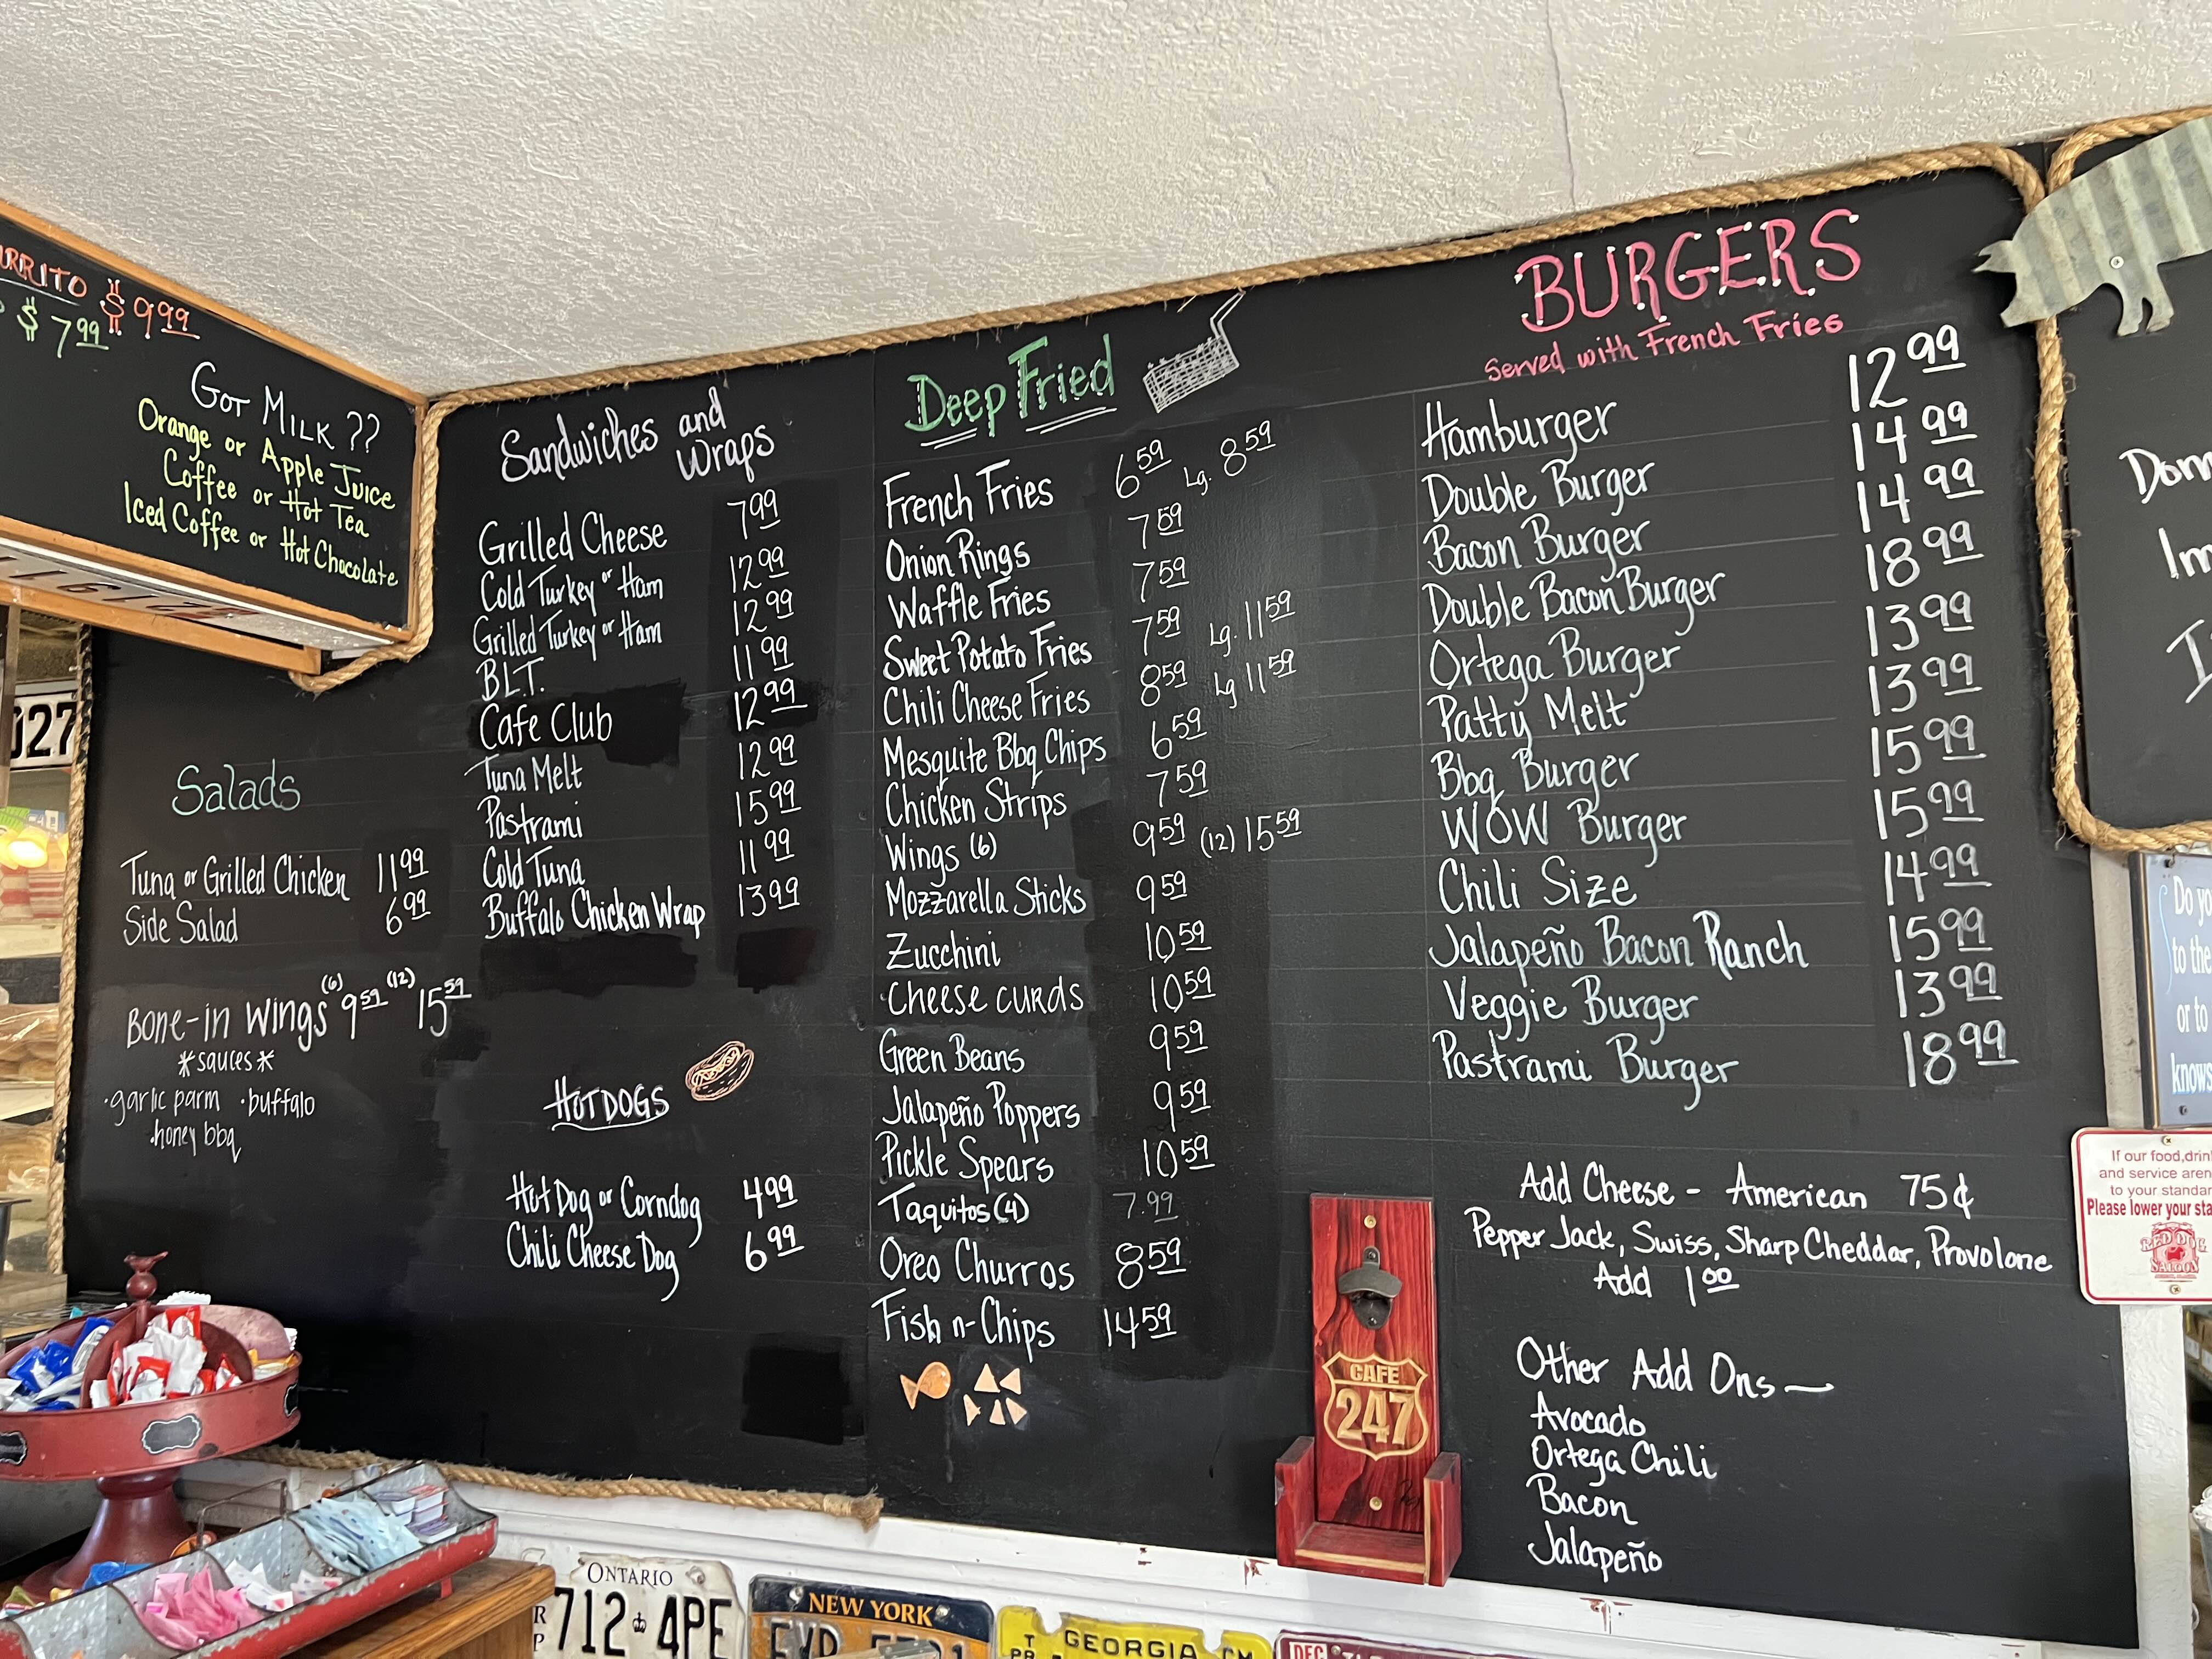 $ 9.99
$ 7.99
GOT MILK ??
Orange or Apple Juice
Coffee or Hot Tea
Iced Coffee or Hot Chocolate
Salads
Tuna or Grilled Chicken 11.99
Side Salad 6.99
BONE-IN WINGS (6) 9.59 (12) 15.59
*sauces*
·garlic parm ·buffalo
·honey bbq
Sandwiches and
Wraps
Grilled Cheese 7.99
Cold Turkey or Ham 12.99
Grilled Turkey or Ham 12.99
B.L.T. 11.99
Cafe Club 12.99
Tuna Melt 12.99
Pastrami 15.99
Cold Tuna 11.99
Buffalo Chicken Wrap 13.99
HOT DOGS
Hot Dog or Corndog 4.99
Chili Cheese Dog 6.99
Deep Fried
French Fries 6.59 Lg. 8.59
Onion Rings 7.59
Waffle Fries 7.59
Sweet Potato Fries 7.59 Lg. 11.59
Chili Cheese Fries 8.59 Lg 11.59
Mesquite Bbq Chips 6.59
Chicken Strips 7.59
Wings (6) 9.59 (12) 15.59
Mozzarella Sticks 9.59
Zucchini 10.59
Cheese curds 10.59
Green Beans 9.59
Jalapeño Poppers 9.59
Pickle Spears 10.59
Taquitos (4) 7.99
Oreo Churros 8.59
Fish n-Chips 14.59
BURGERS
Served with French Fries
Hamburger 12.99
Double Burger 14.99
Bacon Burger 14.99
Double Bacon Burger 18.99
Ortega Burger 13.99
Patty Melt 13.99
Bbq Burger 15.99
WOW Burger 15.99
Chili Size 14.99
Jalapeño Bacon Ranch 15.99
Veggie Burger 13.99
Pastrami Burger 18.99
Add Cheese - American 75¢
Pepper Jack, Swiss, Sharp Cheddar, Provolone
Add 1.00
Other Add Ons—
Avocado
Ortega Chili
Bacon
Jalapeño
CAFE
247
Do
to the
or to
knows
If our food,
and service
to your
Please lower your
RED DOG
SALOON
027
ONTARIO
712 4PE
NEW YORK
GEORGIA
DEC